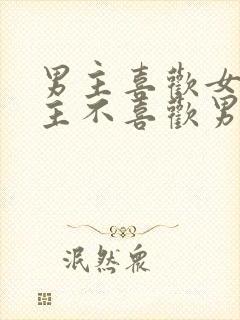 男主喜歡女
主不喜歡男
泯然眾